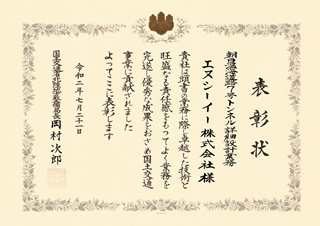 表彰状
朝日温海道路7号トンネル詳細設計業務
エヌシーイー株式会社様
貴社は頭書の業務に際し卓越した技術と
旺盛なる責任感をもってよく業務を
完遂し優秀な成果をおさめ国土交通
事業に貢献されました
よってここに表彰します
令和二年七月二十一日
国土交通省北陸地方整備局長岡村次郎